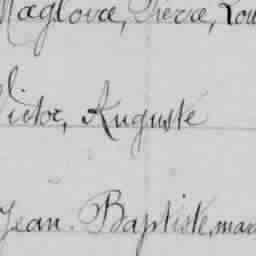 Magloire, Pierre, Lou
Victor, Auguste
Jean Baptiste, mar